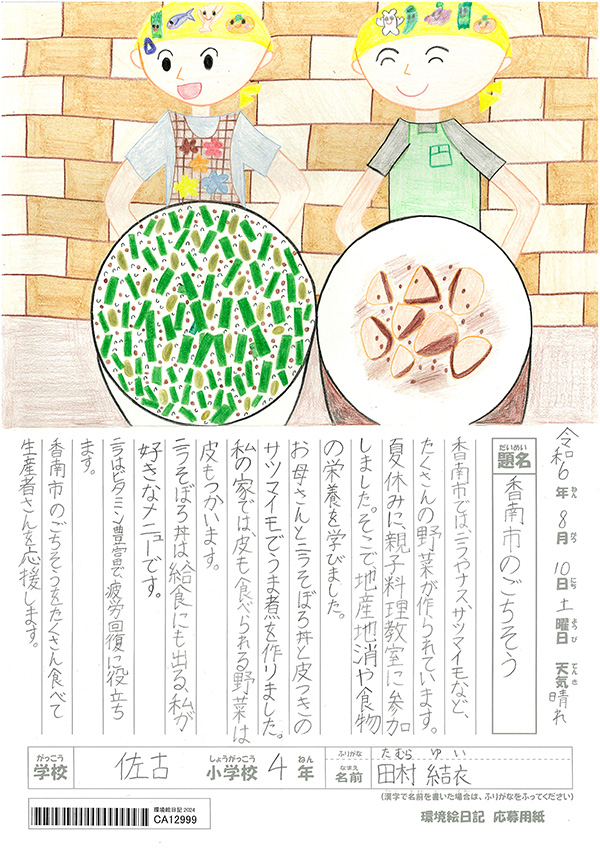 令和6年8月10日土曜日 天気晴れ
ねん がつ にち ようび てんき
だいめい
題名 香南市のごちそう
香南市では、ニラやナス、サツマイモなど、
たくさんの野菜が作られています。
夏休みに、親子料理教室に参加
しました。そこで、地産地消や食物
の栄養を学びました。
お母さんとニラそぼろ丼と皮つきの
サツマイモでうま煮を作りました。
私の家では、皮も食べられる野菜は
皮もつかいます。
ニラそぼろ丼は給食にも出る、私が
好きなメニューです。
ニラはビタミン豊富で、疲労回復に役立ち
ます。
香南市のごちそうをたくさん食べて
生産者さんを応援します。
がっこう しょうがっこう ねん
学校 佐古 小学校 4年
ふりがな たむら ゆい
なまえ
名前 田村 結衣
(漢字で名前を書いた場合は、ふりがなをふってください)
環境絵日記 2024
CA12999
環境絵日記 応募用紙